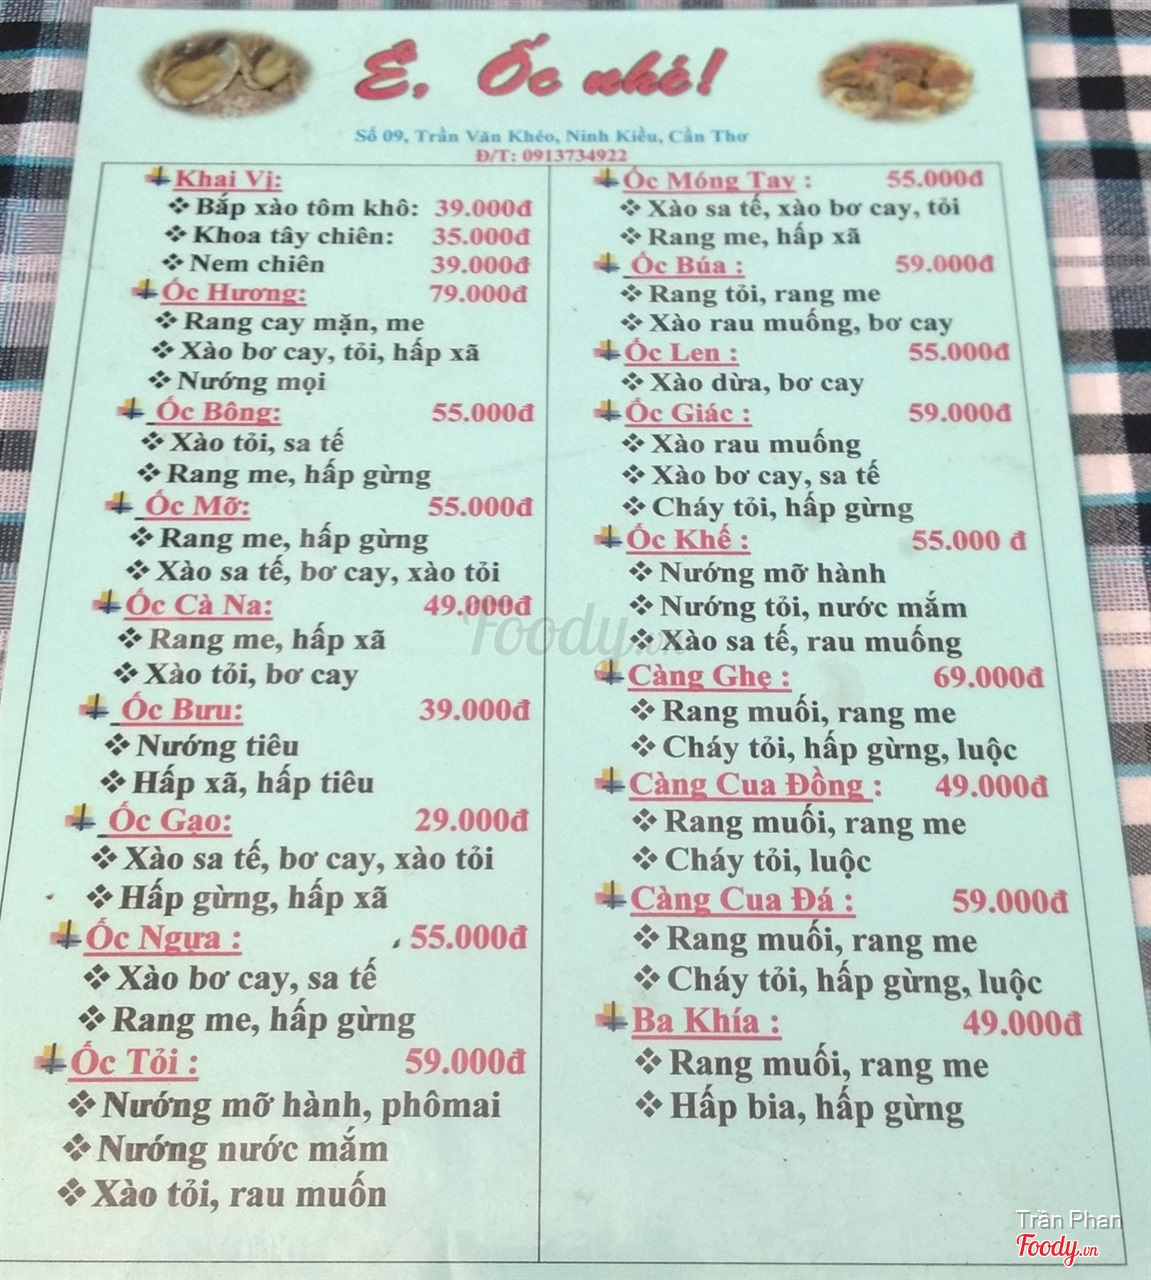 Ê, Ốc nhé!
Số 09, Trần Văn Khéo, Ninh Kiều, Cần Thơ
Đ/T: 0913734922
Khai Vị:
Bắp xào tôm khô: 39.000đ
Khoa tây chiên: 35.000đ
Nem chiên 39.000đ
Ốc Hương: 79.000đ
Rang cay mặn, me
Xào bơ cay, tỏi, hấp xã
Nướng mọi
Ốc Bông: 55.000đ
Xào tỏi, sa tế
Rang me, hấp gừng
Ốc Mỡ: 55.000đ
Rang me, hấp gừng
Xào sa tế, bơ cay, xào tỏi
Ốc Cà Na: 49.000đ
Rang me, hấp xã
Xào tỏi, bơ cay
Ốc Bưu: 39.000đ
Nướng tiêu
Hấp xã, hấp tiêu
Ốc Gạo: 29.000đ
Xào sa tế, bơ cay, xào tỏi
Hấp gừng, hấp xã
Ốc Ngựa : 55.000đ
Xào bơ cay, sa tế
Rang me, hấp gừng
Ốc Tỏi : 59.000đ
Nướng mỡ hành, phômai
Nướng nước mắm
Xào tỏi, rau muốn
Ốc Móng Tay : 55.000đ
Xào sa tế, xào bơ cay, tỏi
Rang me, hấp xã
Ốc Búa : 59.000đ
Rang tỏi, rang me
Xào rau muống, bơ cay
Ốc Len : 55.000đ
Xào dừa, bơ cay
Ốc Giác : 59.000đ
Xào rau muống
Xào bơ cay, sa tế
Cháy tỏi, hấp gừng
Ốc Khế : 55.000 đ
Nướng mỡ hành
Nướng tỏi, nước mắm
Xào sa tế, rau muống
Càng Ghẹ : 69.000đ
Rang muối, rang me
Cháy tỏi, hấp gừng, luộc
Càng Cua Đồng : 49.000đ
Rang muối, rang me
Cháy tỏi, luộc
Càng Cua Đá : 59.000đ
Rang muối, rang me
Cháy tỏi, hấp gừng, luộc
Ba Khía : 49.000đ
Rang muối, rang me
Hấp bia, hấp gừng
Foody.vn
Trần Phan
Foody.vn